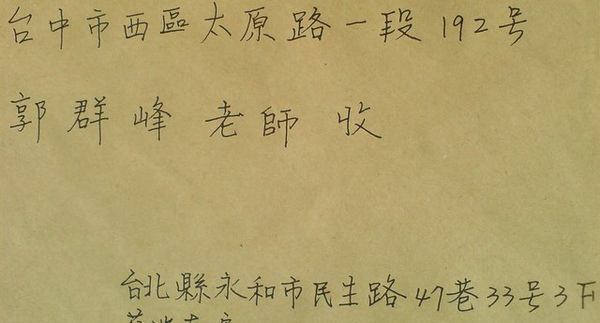 台中市西區太原路一段192号
郭群峰老師 收
台北縣永和市民生路47巷33号3F